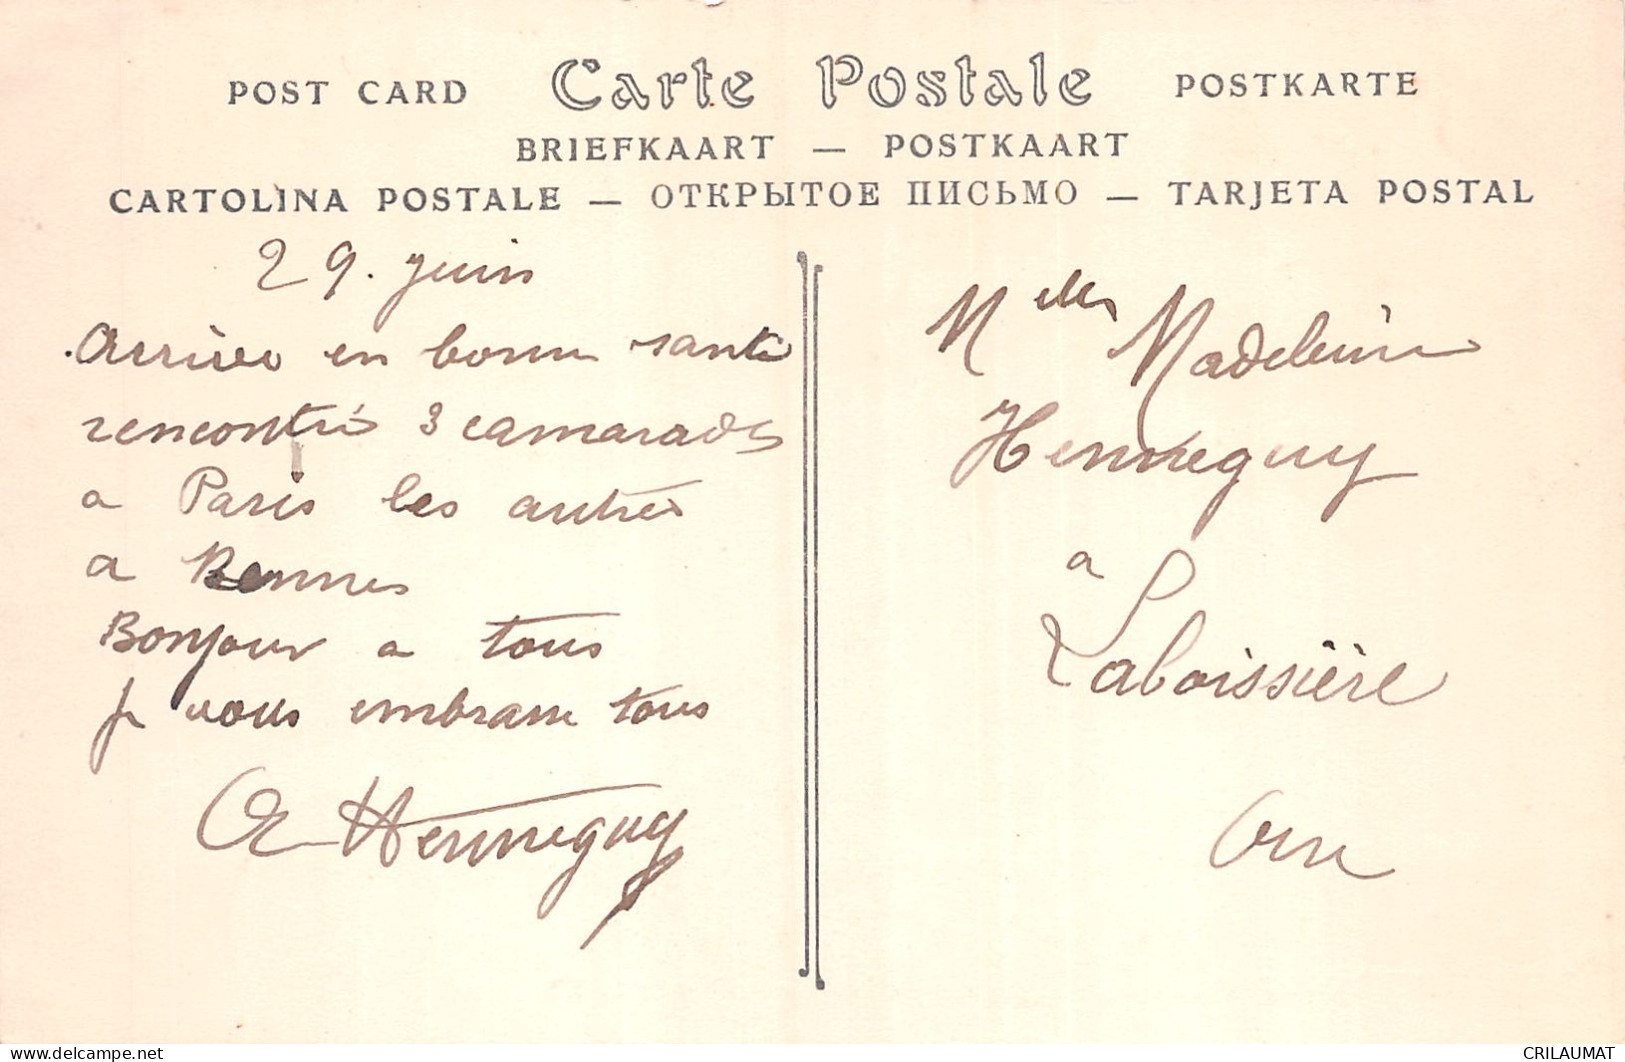 POST CARD Carte Postale POSTKARTE
BRIEFKAART — POSTKAART
CARTOLINA POSTALE — ОТКРЫТОЕ ПИСЬМО — TARJETA POSTAL
29. juin
Arrivee en bonne santé
rencontrés 3 camarades
a Paris les autres
a Rennes
Bonjour a tous
Je vous embrasse tous
Henneguy
Madeleine
Henneguy
a
Laboissière
Oise
CRILAUMAT